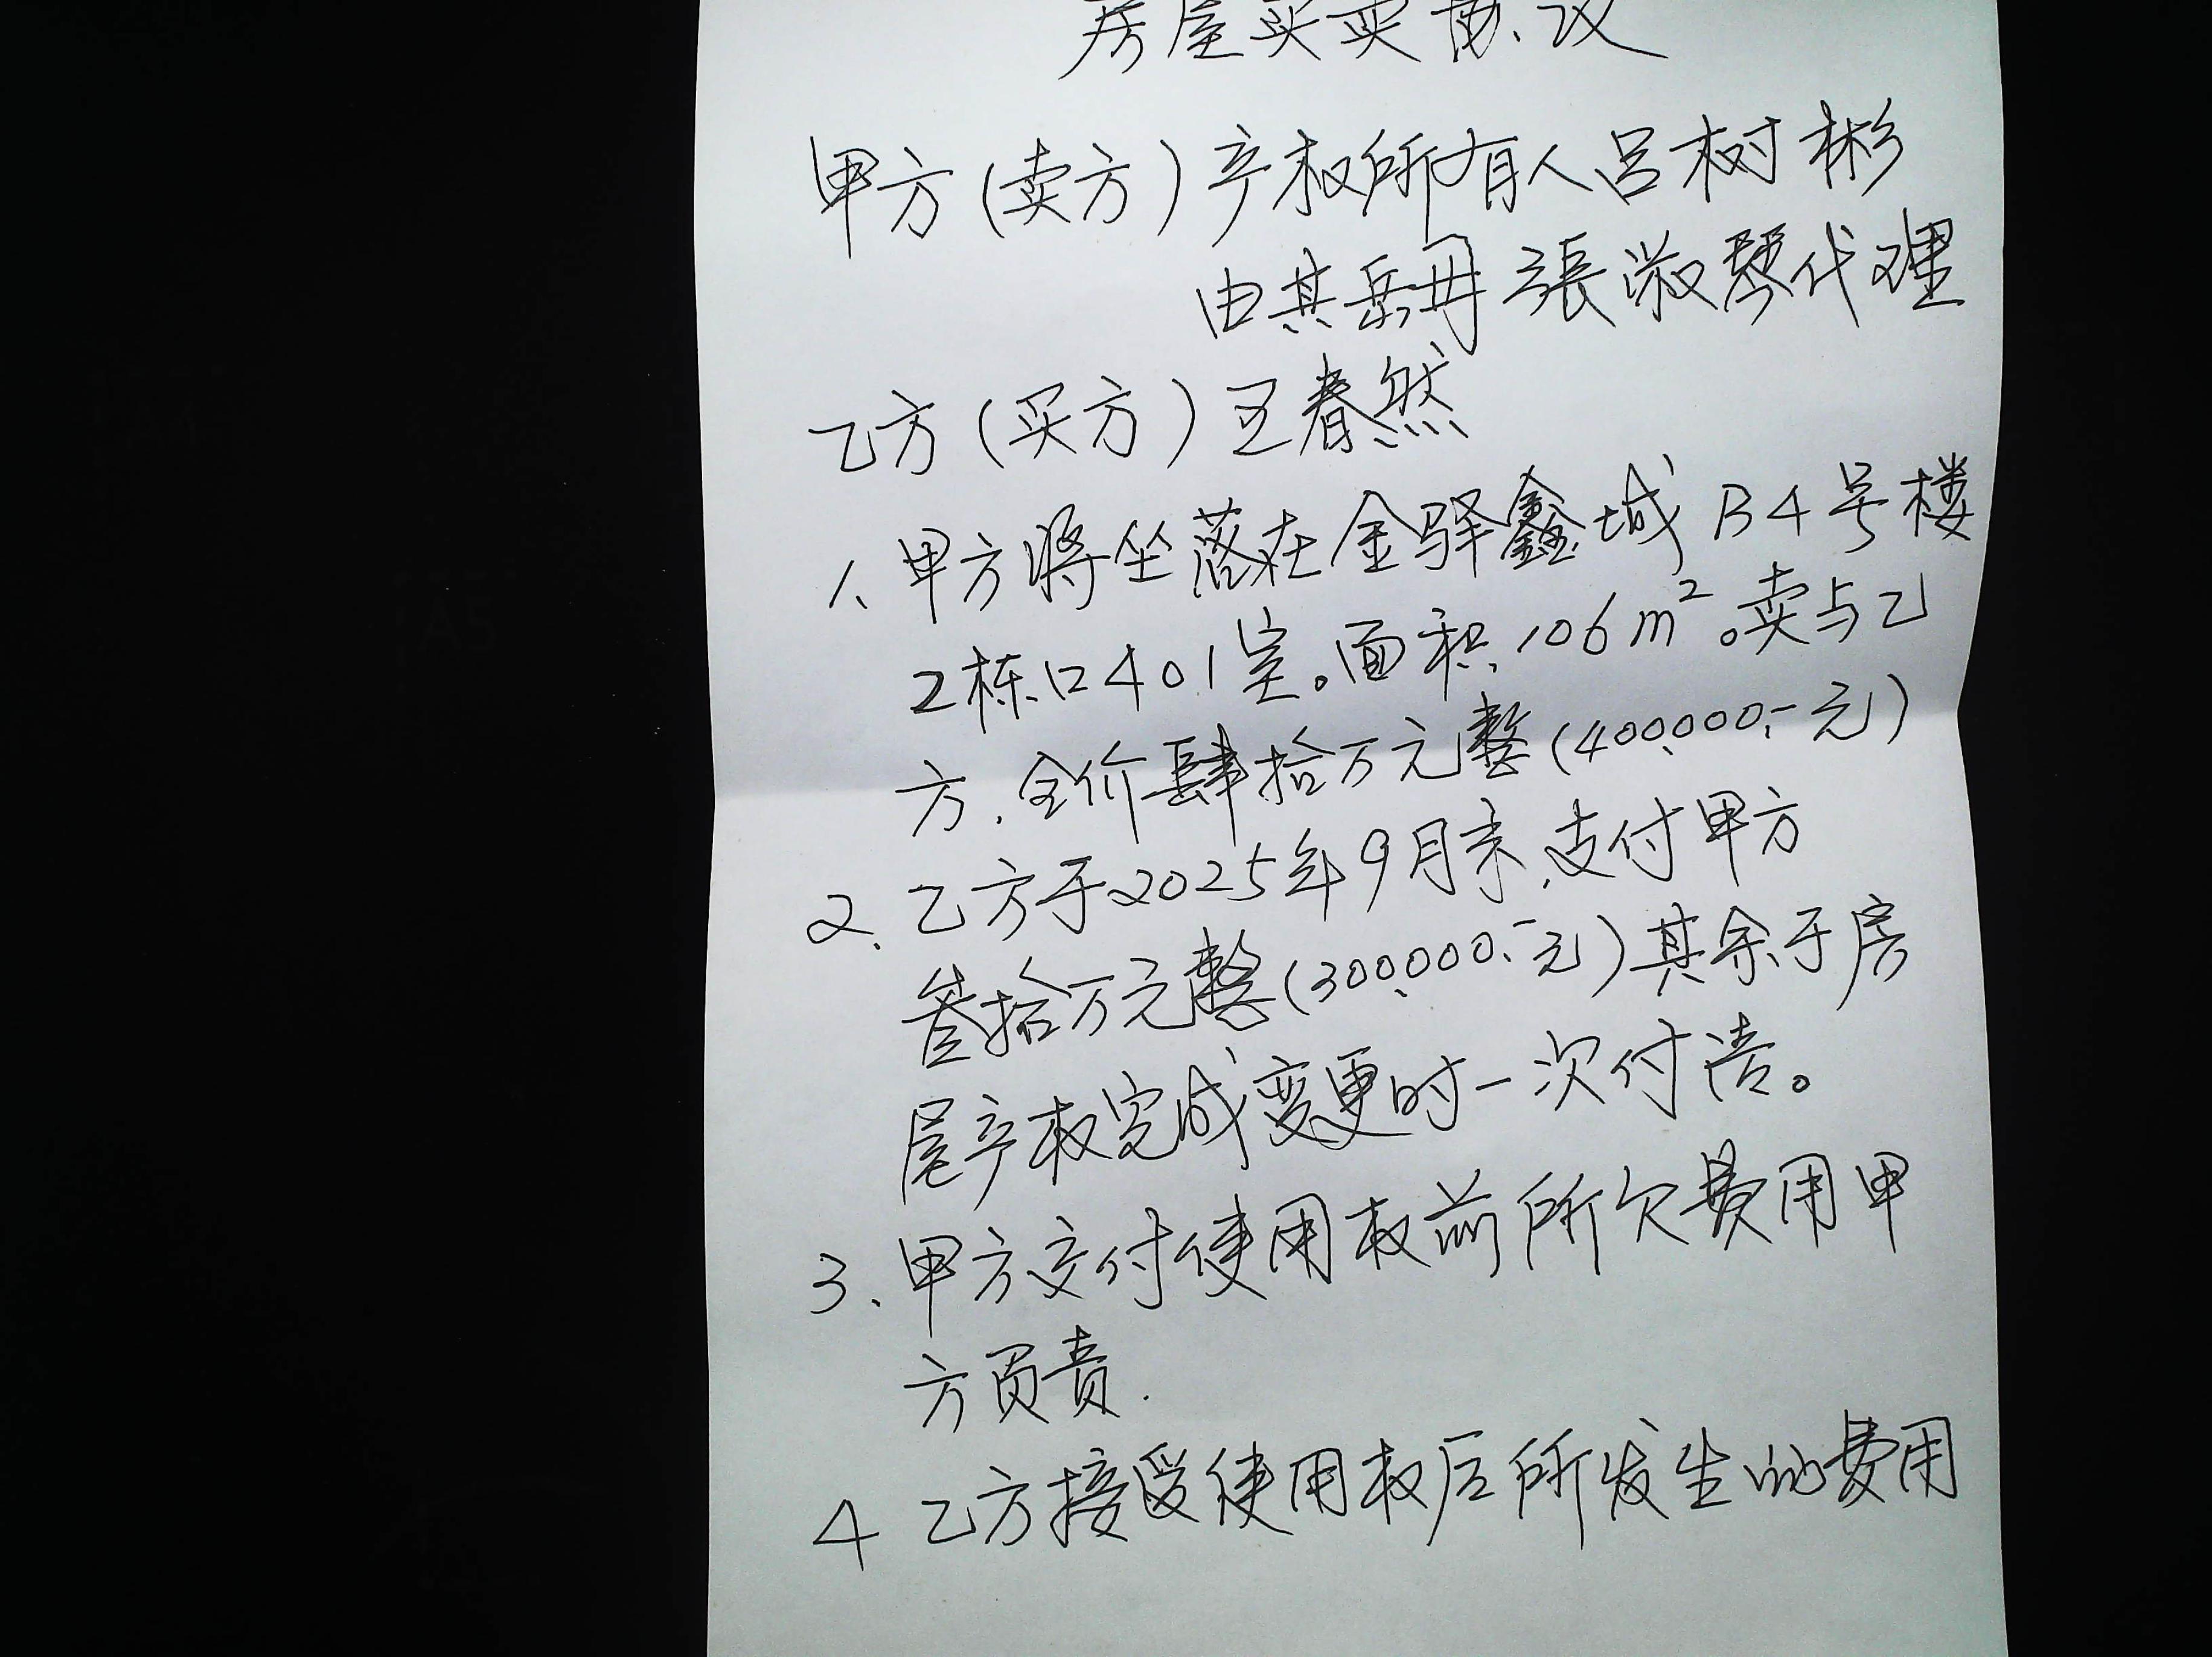 房屋买卖协议
甲方(卖方)产权所有人吕树彬
由其岳母張淑琴代理
乙方(买方)王春然
1、甲方将坐落在金驿鑫城B4号楼
2栋口401室。面积106m²。卖与乙
方.全价肆拾万元整(400,000.-元)
2、乙方于2025年9月末,支付甲方
叁拾万元整(300,000.-元)其余于房
屋产权完成变更时一次付清。
3、甲方交付使用权前所欠费用甲
方负责.
4 乙方接受使用权后所发生的费用